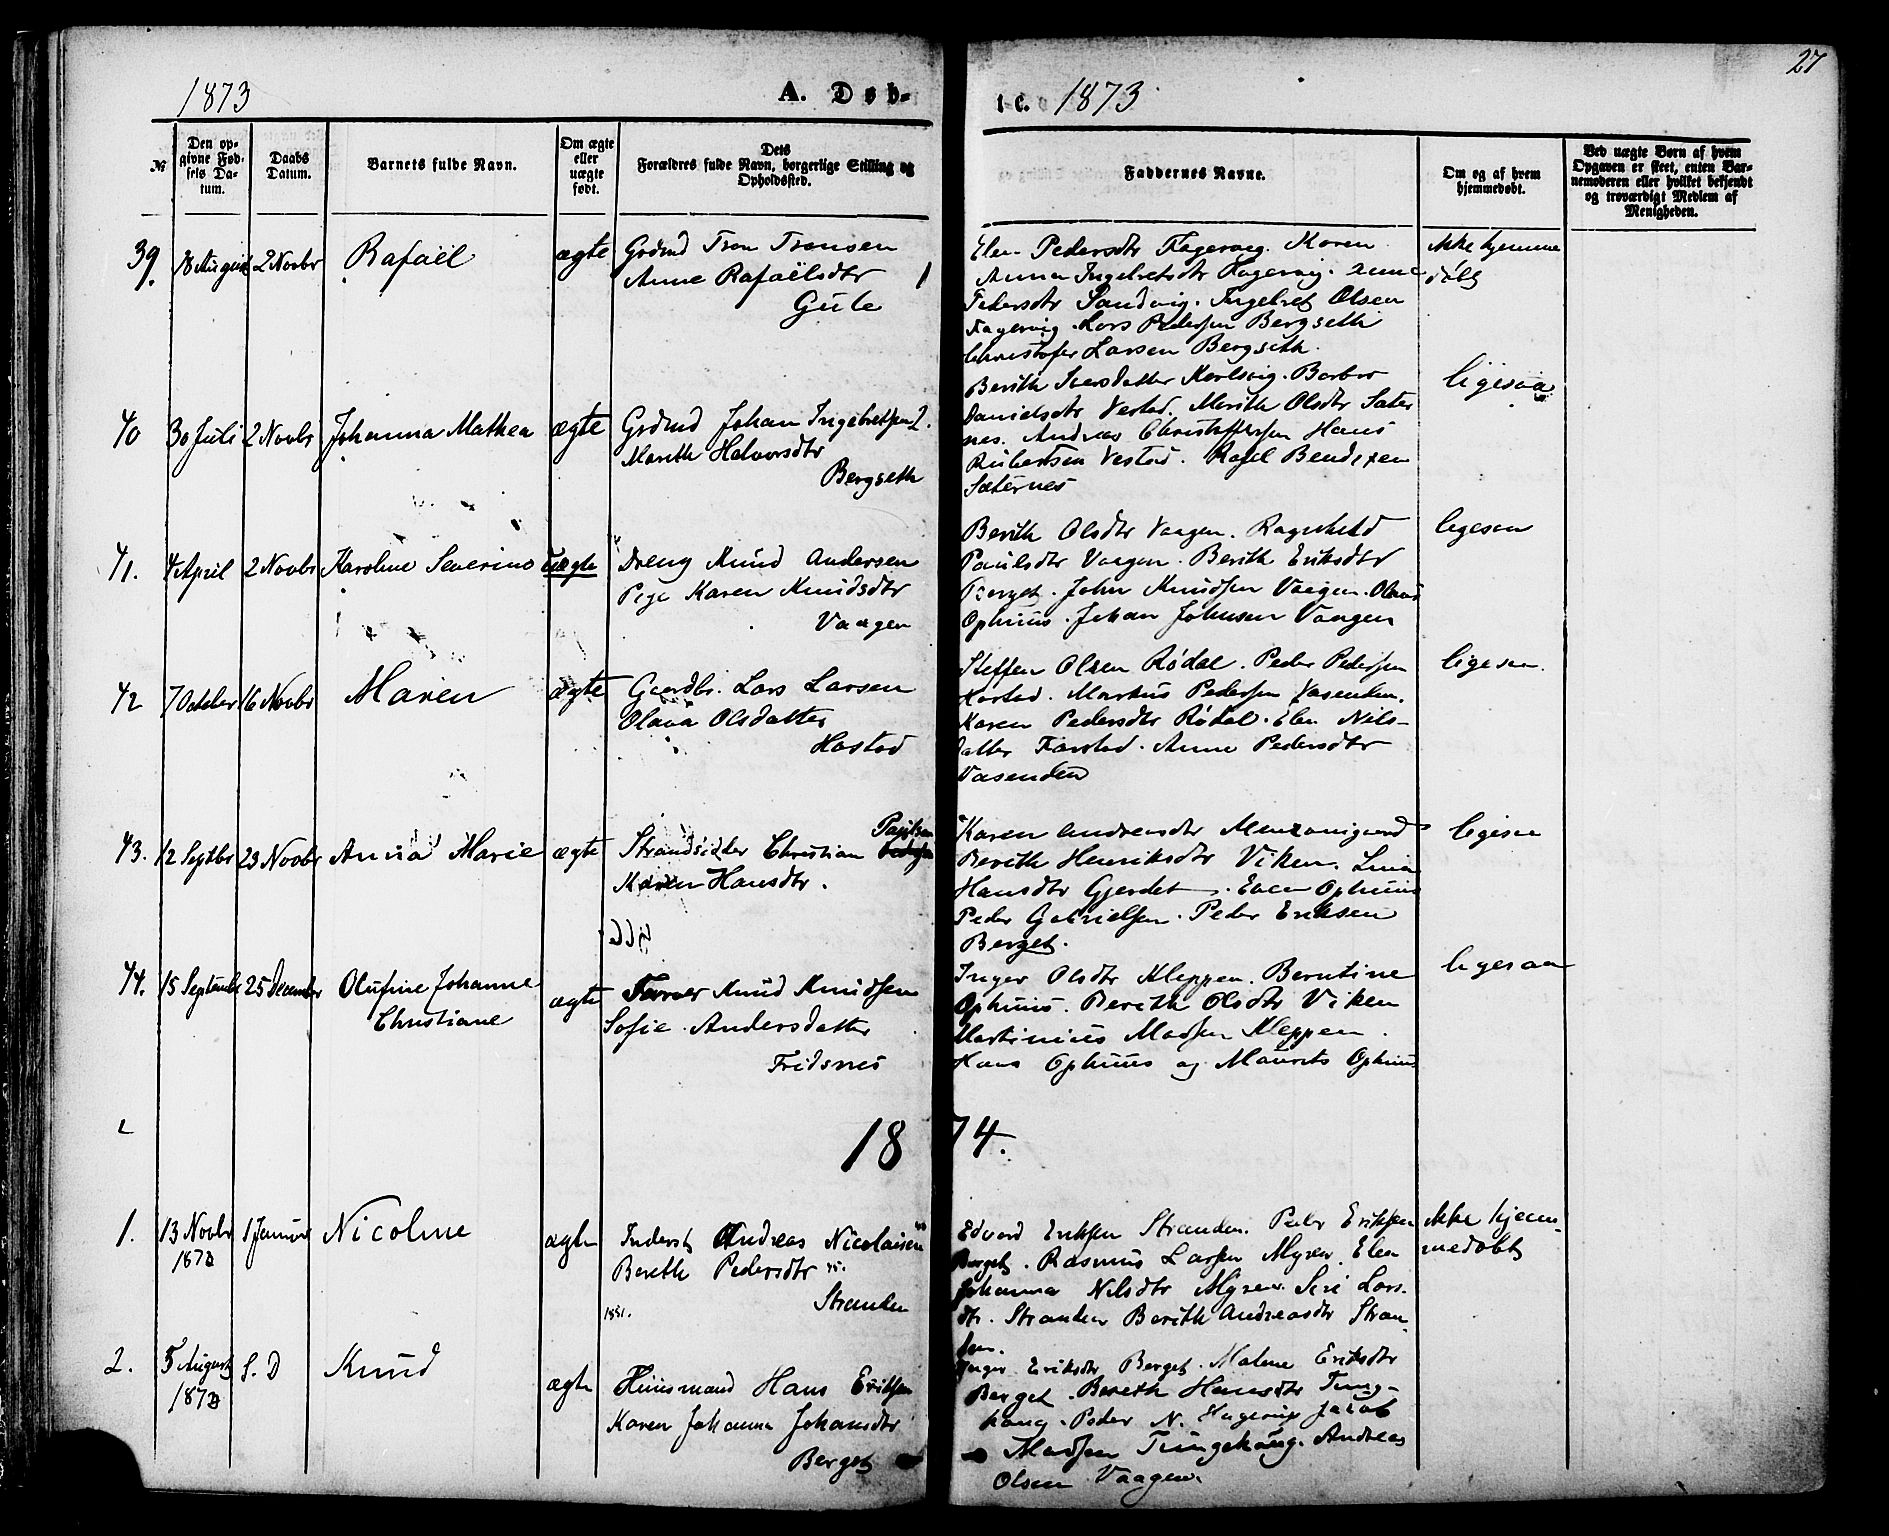 27
1873 A. Døb-
te. 1873.
№
Den op-
givne Fød-
sels Da-
tum.
Daabs
Datum.
Barnets fulde Navn.
Om ægte
eller
uægte
født.
Dets
Forældres fulde Navn, borgerlige Stilling og
Opholdssted.
Faddernes Navne.
Om og af hvem
hjemmedøbt.
Ved uægte Børn af hvem
Opgaven er skeet, enten Bar-
nemoderen eller hvilket bekjendt
og troværdigt Medlem af
Menigheden.
39. 18 August 2 Novbr Rafaël ægte
Grdmd Tron Tronsen
Anne Rafaëlsdtr 1
Gule
Elen Pedersdtr Fagervig. Maren
Anna Ingebretsdtr Fagervig. Anne
Pedersdtr Sandvig. Ingebret Olsen
Fagervig. Lars Pedersen Bergseth
Christofer Larsen Bergseth.
ikke hjemme
døbt
40 30 Juli 2 Novbr Johanna Mathea ægte
Grdmd Johan Ingebretsen 2.
Marith Halvorsdtr
Bergseth
Berith Iversdatter Karlsvig. Barbro
Danielsdtr Vestad. Marith Olsdtr Sæter
nes. Andreas Christoffersen Hans
Rubertsen Vestad. Rafel Bendixen
Sæternes
ligesaa
41. 4 April 2 Novbr Karoline Severine uægte
Dreng Knud Andersen
Pige Karen Knudsdtr
Vaagen
Berith Olsdtr Vaagen. Ragnhild
Paulsdtr Vaagen. Berith Eriksdtr
Berget. John Knudsen Vaagen. Olaus
Ophuus. Johan Johnsen Vaagen
ligesaa
42 7 October 16 Novbr Maren ægte
Gaardbr. Lars Larsen
Olava Olsdatter
Hostad
Steffen Olsen Rødal. Peder Pedersen
Hostad. Markus Pedersen Vasenden.
Karen Pedersdtr Rødal. Elen Nils-
datter Farstad. Anne Pedersdtr
Vasenden
ligesaa.
43. 12 Septbr 23 Novbr Anna Marie ægte
Strandsidder Christian
Karen Hansdtr.
Karen Andreasdtr
Berith Henriksdtr Viken. Lina
Hansdtr Gjerdet. Even Ophuus
Peder Gabrielsen. Peder Eriksen
Berget.
ligesaa
44. 15 September 25 December Olufine Johanne
Christiane
ægte
Farver Knud Knudsen
Sofie Andersdatter
Fridsnes
Inger Olsdtr Kleppen. Berntine
Ophuus. Berith Olsdtr Viken
Martinius Madsen Kleppen.
Hans Ophuus og Maurits Ophuus
ligesaa
1874.
1. 13 Novbr
1873
1 Januar Nicoline ægte
Inderst Andreas Nicolaisen
Berith Pedersdtr
Stranden
1851.
Edvard Eriksen Stranden. Peder Eriksen
Berget. Rasmus Larsen Myren. Elen
Johanna Nilsdtr Myren. Siri Lars-
dtr. Stranden Berith Andreasdtr Stran-
den.
ikke hjem-
medøbt
2. 5 August
1873
S. D Knud ægte
Huusmand Hans Eriksen
Karen Johanna Johansdtr
Berget
Inger Eriksdtr Berget. Malene Eriksdtr
Berget. Berith Hansdtr Tung-
haug. Peder N. Hagevig Jacob
Madsen Tungehaug. Andreas
Olsen Vaagen.